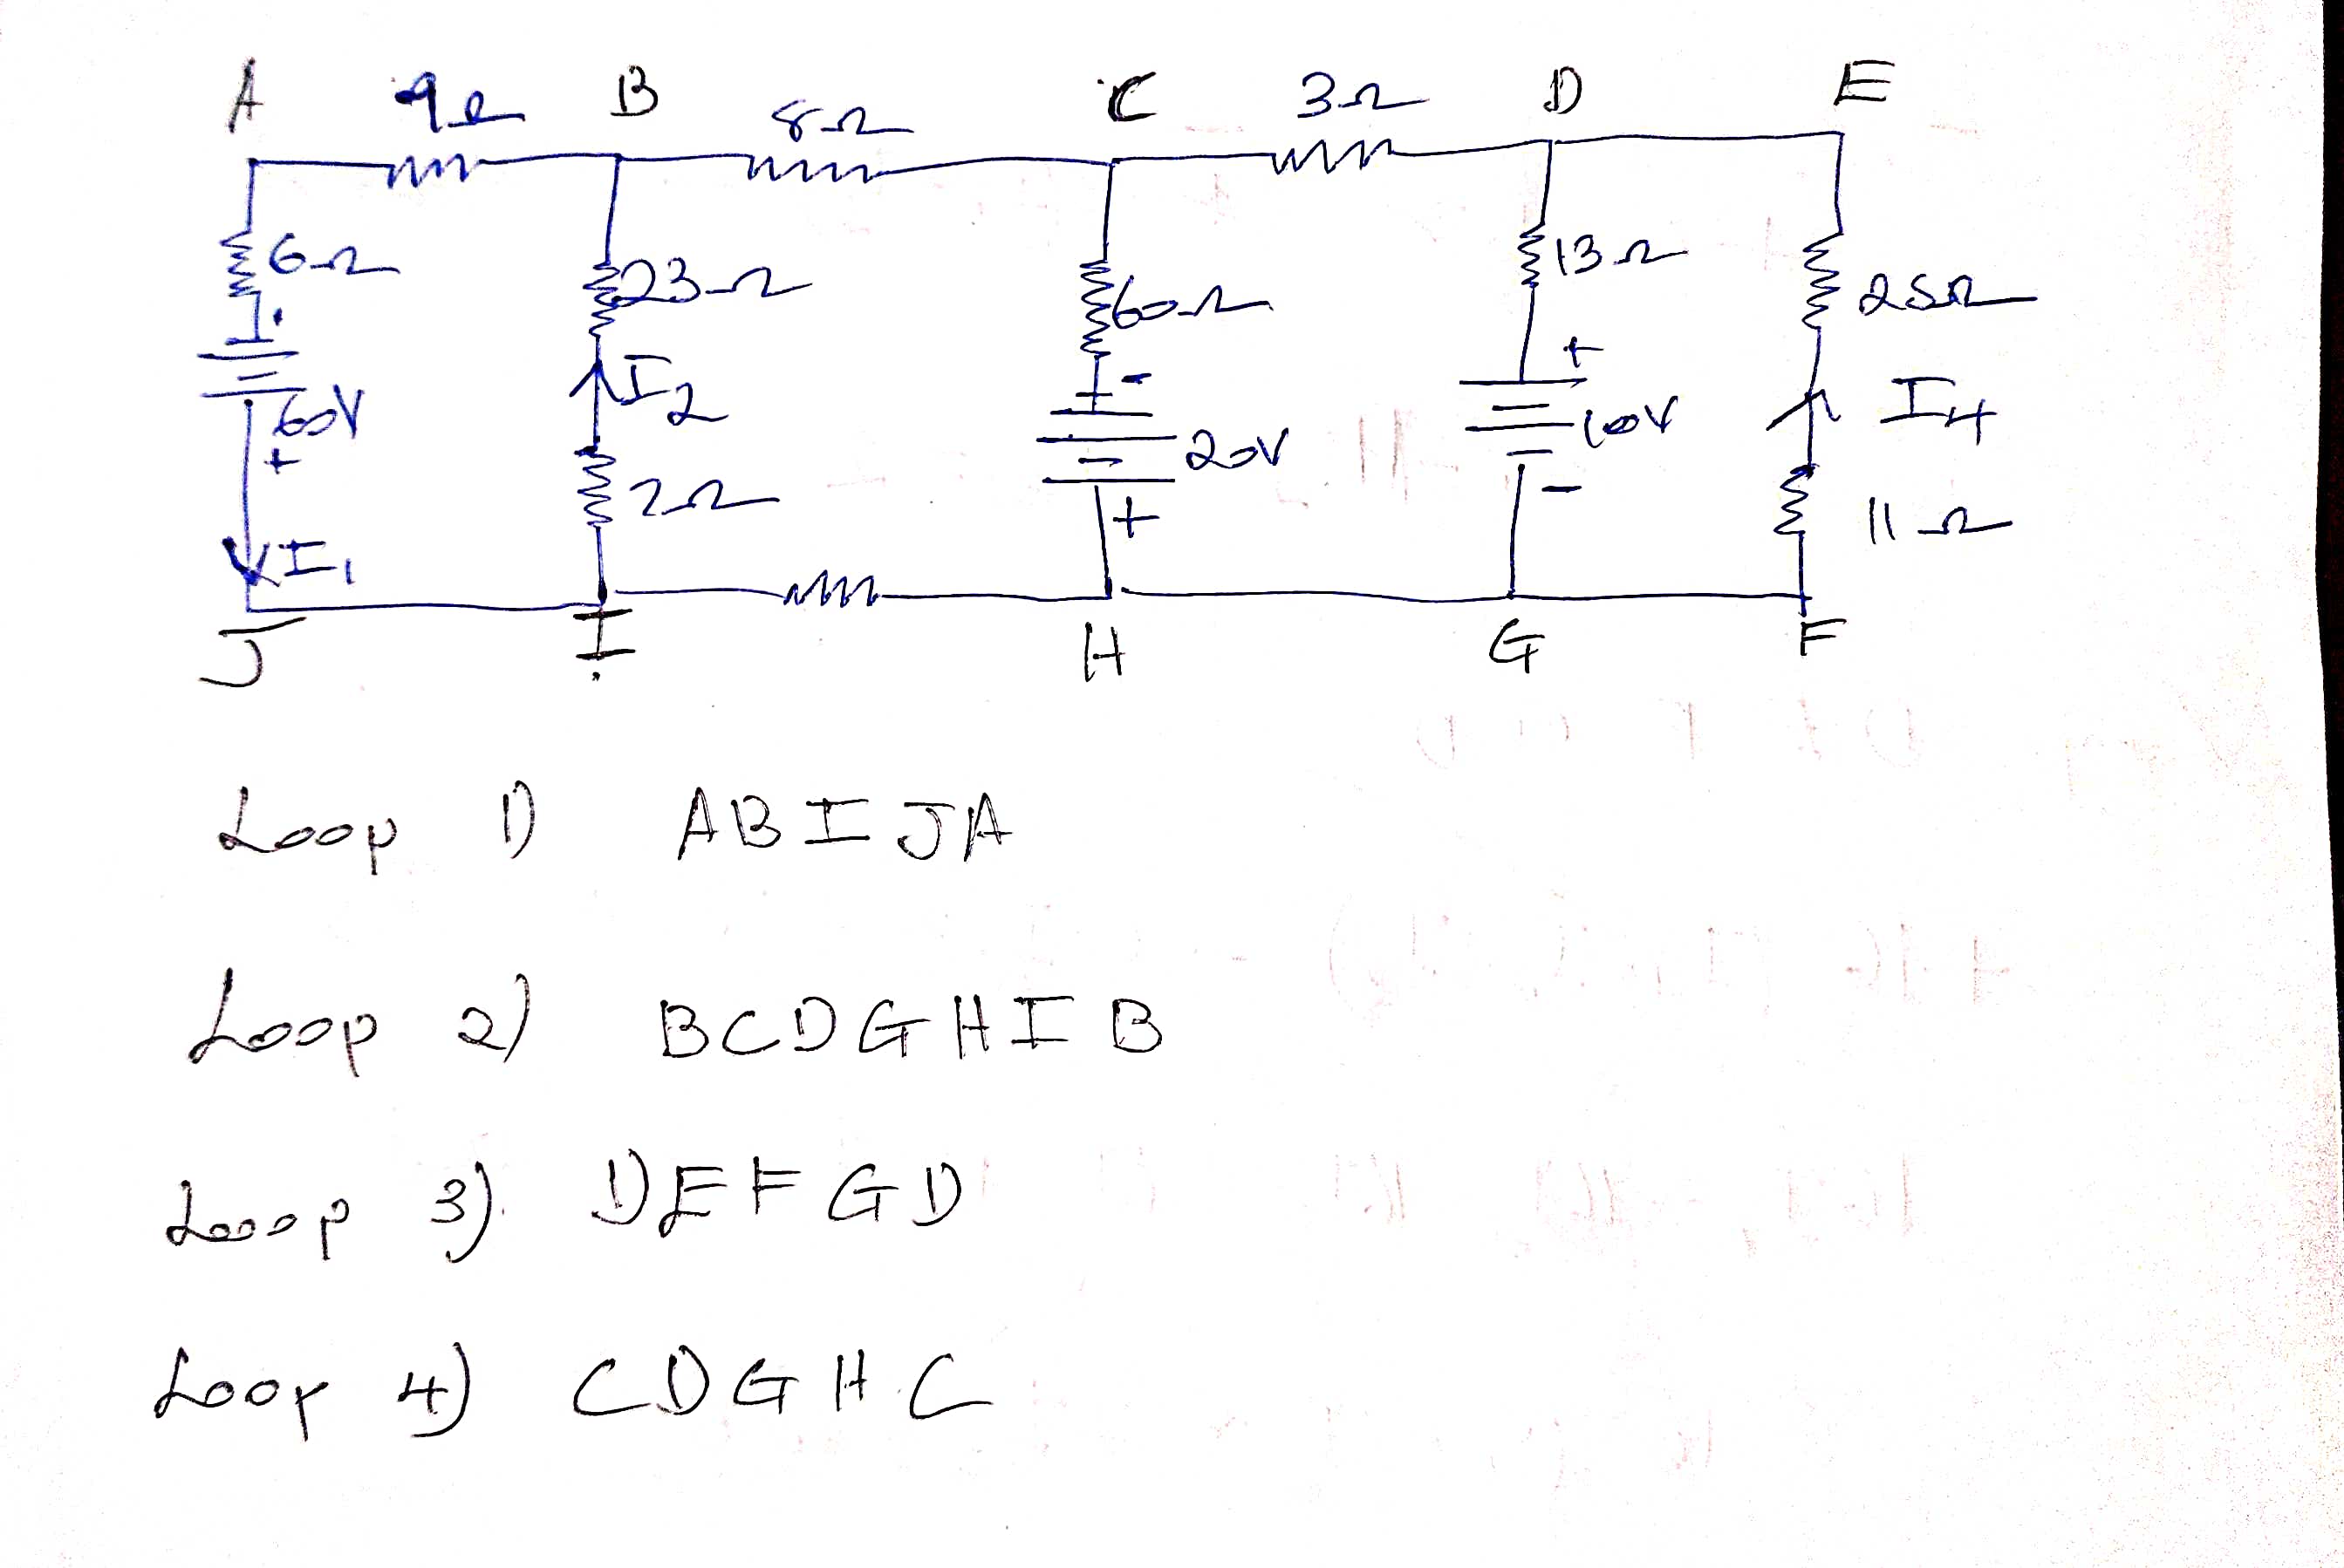 A 9Ω B 8Ω C 3Ω D E
6Ω 23Ω 60Ω 13Ω 25Ω
- I2 - + I4
60V 20V 10V
+ 2Ω + - 11Ω
I1
J I H G F
Loop 1) ABIJA
Loop 2) BCDGHIB
Looop 3). DEFGD
Loop 4) CDGHC